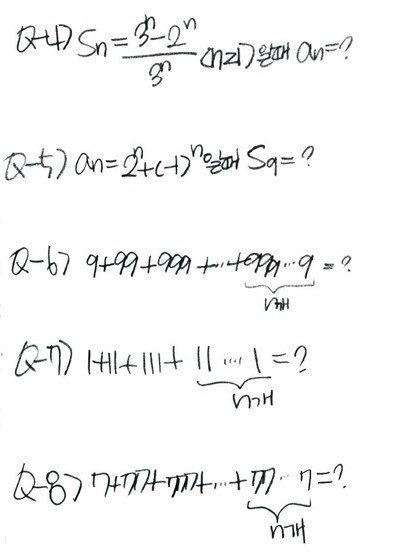 Q-4) Sn = 3ⁿ-2ⁿ / 3ⁿ (n≥1)일때 an=?
Q-5) an=2ⁿ+(-1)ⁿ일때 S9=?
Q-6) 9+99+999+...+999...9=?
n개
Q-7) 1+11+111+ 11....1=?
n개
Q-8) 7+77+777+...+777..7=?
n개